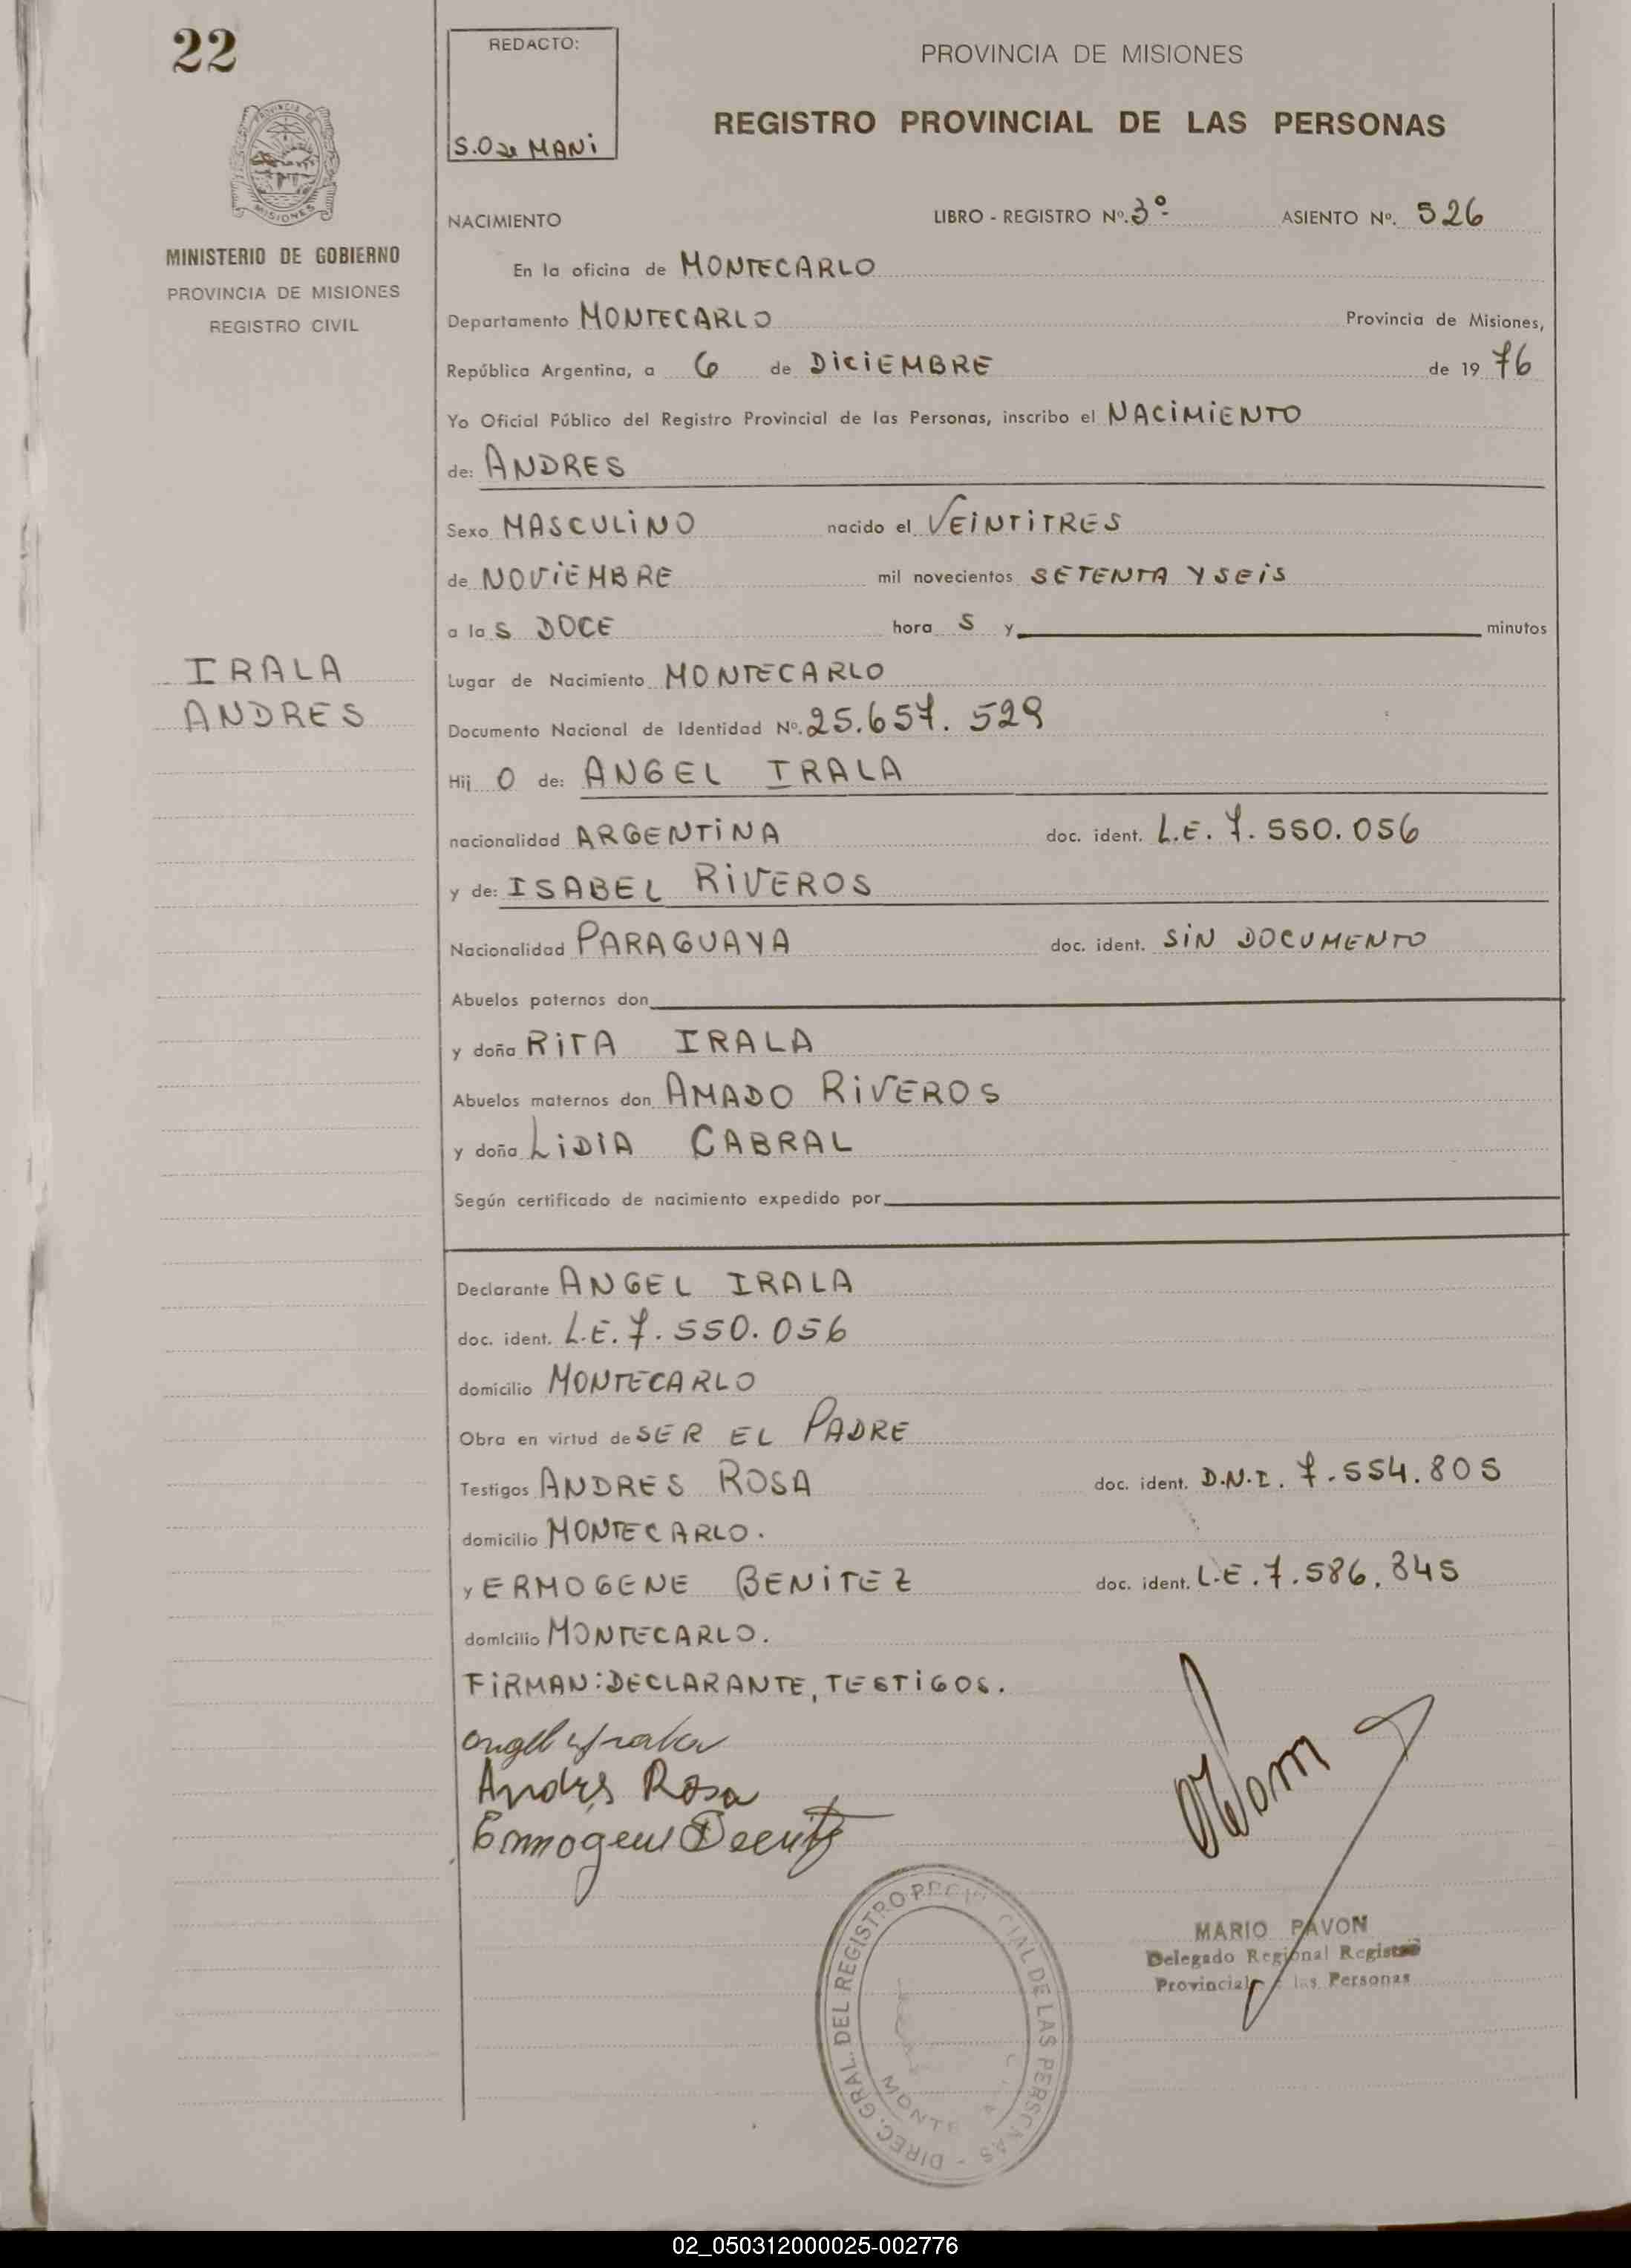 22
REDACTO:
S.O de MANI
PROVINCIA DE MISIONES
REGISTRO PROVINCIAL DE LAS PERSONAS
PROVINCIA DE
MISIONES
MINISTERIO DE GOBIERNO
PROVINCIA DE MISIONES
REGISTRO CIVIL
NACIMIENTO LIBRO - REGISTRO Nº. 3º ASIENTO Nº. 526
En la oficina de MONTECARLO
Departamento MONTECARLO Provincia de Misiones,
República Argentina, a 6 de DICIEMBRE de 19 76
Yo Oficial Público del Registro Provincial de las Personas, inscribo el NACIMIENTO
de: ANDRES
Sexo MASCULINO nacido el VEINTITRES
de NOVIEMBRE mil novecientos SETENTA Y SEIS
a la S DOCE hora S y minutos
IRALA
ANDRES
Lugar de Nacimiento MONTECARLO
Documento Nacional de Identidad Nº. 25.657.529
Hij O de: ANGEL IRALA
nacionalidad ARGENTINA doc. ident. L.E. 7.550.056
y de: ISABEL RIVEROS
Nacionalidad PARAGUAYA doc. ident. SIN DOCUMENTO
Abuelos paternos don
y doña RITA IRALA
Abuelos maternos don AMADO RIVEROS
y doña LIDIA CABRAL
Según certificado de nacimiento expedido por
Declarante ANGEL IRALA
doc. ident. L.E. 7.550.056
domicilio MONTECARLO
Obra en virtud de SER EL PADRE
Testigos ANDRES ROSA doc. ident. D.N.I. 7.554.805
domicilio MONTECARLO.
y ERMOGENE BENITEZ doc. ident. L.E. 7.586.845
domicilio MONTECARLO.
FIRMAN: DECLARANTE, TESTIGOS.
Angel Irala
Andrés Rosa
DIREC. GRAL. DEL REGISTRO PROVINCIAL DE LAS PERSONAS
MARIO PAVON
Delegado Regional Registro
Provincial de las Personas
02_050312000025-002776